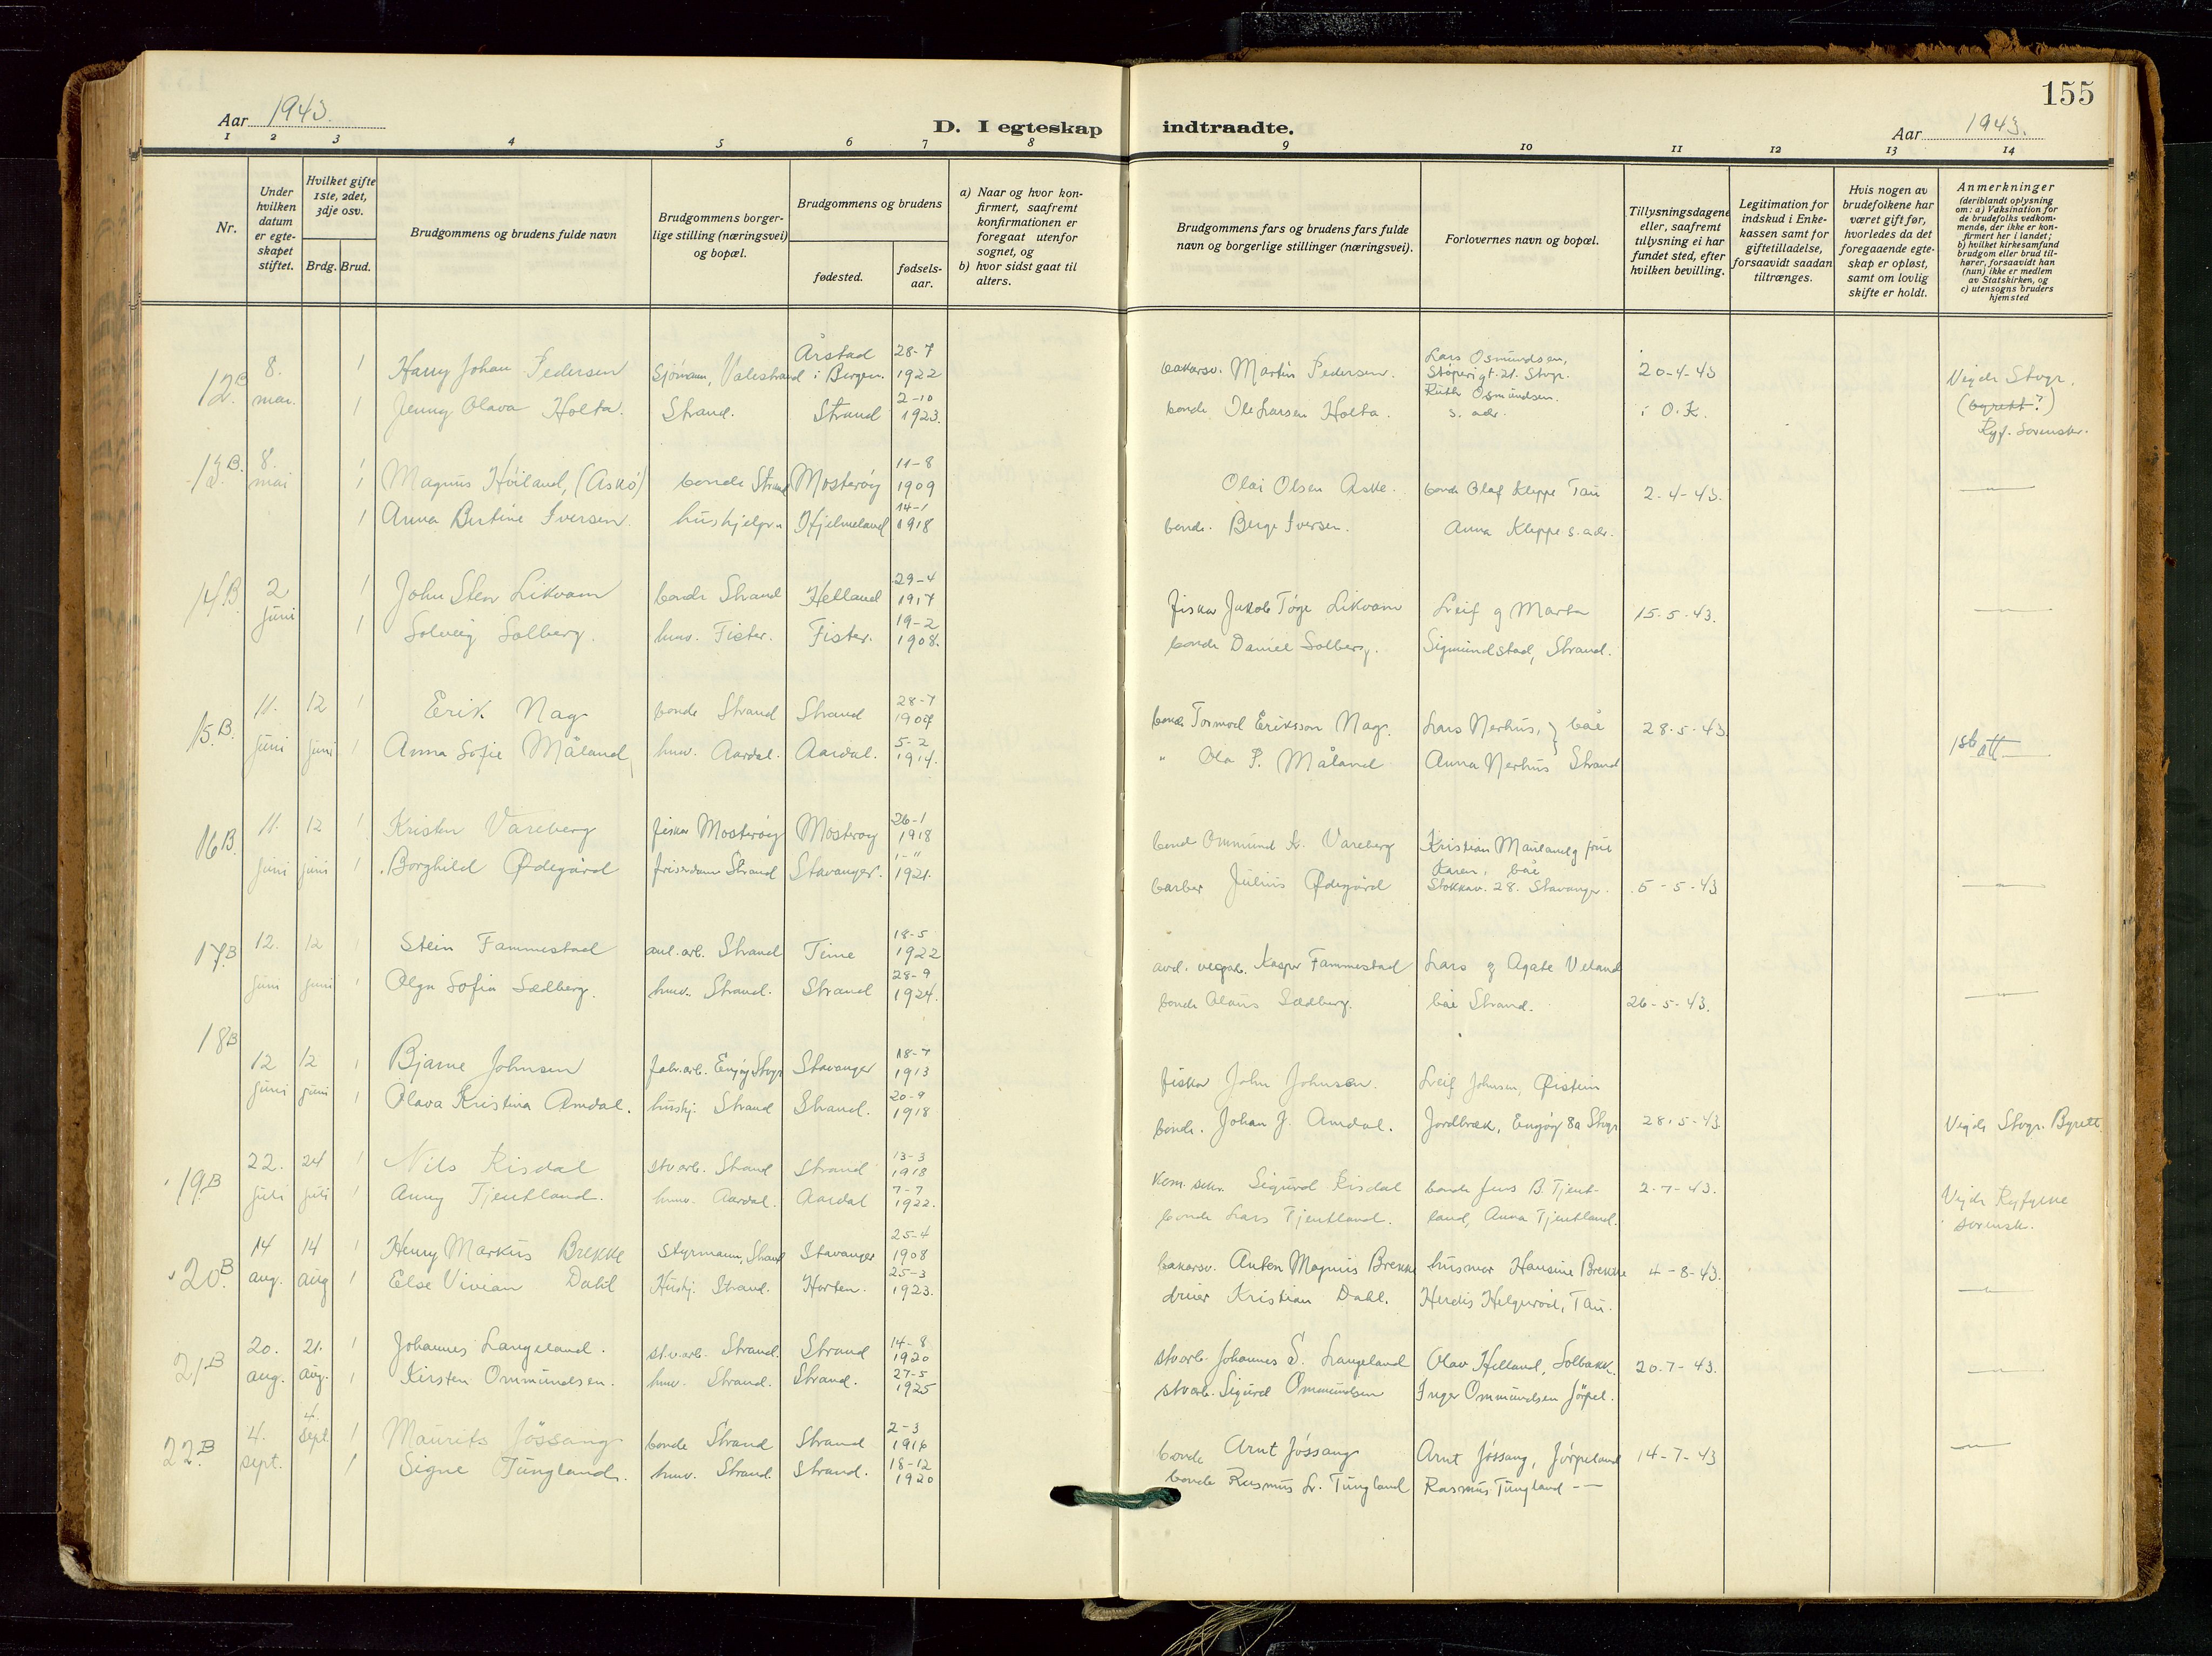 155
Aar 1943.
D. I egteskap indtraadte.
Aar 1943.
1 2 3 4 5 6 7 8 9 10 11 12 13 14
Nr.
Under hvilken datum er egteskapet stiftet.
Hvilket gifte 1ste, 2det, 3dje osv.
Brdg. Brud.
Brudgommens og brudens fulde navn
Brudgommens borgerlige stilling (næringsvei) og bopæl.
Brudgommens og brudens
fødested.
fødselsaar.
a) Naar og hvor konfirmert, saafremt konfirmationen er foregaat utenfor sognet, og
b) hvor sidst gaat til alters.
Brudgommens fars og brudens fars fulde navn og borgerlige stillinger (næringsvei).
Forlovernes navn og bopæl.
Tillysningsdagene eller, saafremt tillysning ei har fundet sted, efter hvilken bevilling.
Legitimation for indskud i Enkekassen samt for giftetilladelse, forsaavidt saadan tiltrænges.
Hvis nogen av brudefolkene har været gift før, hvorledes da det foregaaende egteskap er opløst, samt om lovlig skifte er holdt.
Anmerkninger (deriblandt oplysning om: a) Vaksination for de brudefolks vedkommende, der ikke er konfirmert her i landet; b) hvilket kirkesamfund brudgom eller brud tilhører, forsaavidt han (hun) ikke er medlem av Statskirken, og c) utensogns bruders hjemsted
12B 8. mai 1 Harry Johan Pedersen sjömann, Valestrand Årstad i Bergen. 28-7 1922 bakersv. Martin Pedersen. Lars Osmundsen, Støperigt. 21. Stvgr. 20-4-43 Vigde Stvgr.
1 Jenny Olava Holta. Strand. Strand 2-10 1923. bonde Ole Larsen Holta. Ruth Osmundsen. s. adr. i O.K. (byrett?) Ryf. sorenskr.
13B. 8. mai 1 1 Magnus Höiland, (Askö) bonde Strand Mosteröy 11-8 1909 Olai Olsen Aske. bonde Olaf Kleppe Tau 2-4-43.
1 Anna Bertine Iversen. hushjelp Hjelmeland 14-1 1918 bonde. Berge Iversen. Anna Kleppe s. adr.
14B 2 juni 1 John Sten Likvam bonde Strand Helland 29-4 1917 fisker Jakob Töge Likvam Leif og Marta 15-5-43.
1 Solveig Solberg. hmv. Fister. Fister. 19-2 1908. bonde Daniel Solberg. Sigmundstad, Strand.
15.B. 11. juni 12 juni 1 Erik Nag bonde Strand Strand 28-7 bonde Tormod Eriksson Nag. Lars Nerhus, } båe 28-5-43.
1 Anna Sofie Måland hmv. Aardal. Aardal. 5-2 1914. " Ola P. Måland Anna Nerhus Strand
16B. 11. juni 12 juni 1 Kristen Vareberg fisker Mosteröy Mosteröy 26-1 1918 bonde Ommund K. Vareberg Kristian Mauland og frue
1 Borghild Ødegård friserdame Strand Stavanger. 1-11 1921. barber Julius Ødegård Karen, båe Stokkav. 28. Stavanger. 5-5-43
17B 12. juni 12 juni 1 Stein Fammestad anl. arb. Strand Time 18-5 1922 Kasper Fammestad Lars og Agate Veland
1 Olga Sofie Sædberg. hmv. Strand. Strand 28-9 1924. bonde Olaus Sædberg. båe Strand. 26-5-43.
18B 12 juni 12 juni 1 Bjarne Johnsen fabr.arb. Engöy Stvgr Stavanger 18-7 1913 fisker John Johnsen. Leif Johnsen, Øistein
1 Olava Kristina Amdal. hushj. Strand Strand. 20-9 1918 bonde. Johan J. Amdal. Jordbræk, Engöy 8a Stvgr 28-5-43. Vigde Stvgr. Byrett.
19B 22. juli 24 juli 1 Nils Risdal stv.arb. Strand Strand 13-3 1918 Sigurd Risdal bonde Jens B. Tjent- 2-7-43. Vigde Ryfylke
1 Anny Tjentland. hmv. Aardal. Aardal 7-7 1922. bonde Lars Tjentland. land, Anna Tjentland. sorensk.
20.B 14 aug. 14 aug 1 Henry Markus Brekke styrmann, Strand Stavanger 25-4 1908 bakersv. Anten Magnus Brekke husmor Hansine Brekke 4-8-43.
1 Else Vivian Dahl Hushj. Strand. Horten. 25-3 1923. Kristian Dahl. Herdis Helgeröd, Tau.
21B 20. aug. 21. aug. 1 Johannes Langeland. stv.arb. Strand. Strand 14-8 1920 stv.arb. Johannes S. Langeland Olav Helland, Solbakk. 20-7-43.
1 Kirsten Ommundsen. hmv. Strand. Strand. 27-5 1925 stv.arb. Sigurd Ommundsen Inger Ommundsen Jörpel.
22B. 4. sept. 4. sept. 1 Maurits Jössang bonde Strand Strand 2-3 1916 bonde Arnt Jössang Arnt Jössang, Jörpeland 14-7-43
1 Signe Tungland. hmv. Strand. Strand. 18-12 1920 bonde Rasmus Lr. Tungland Rasmus Tungland